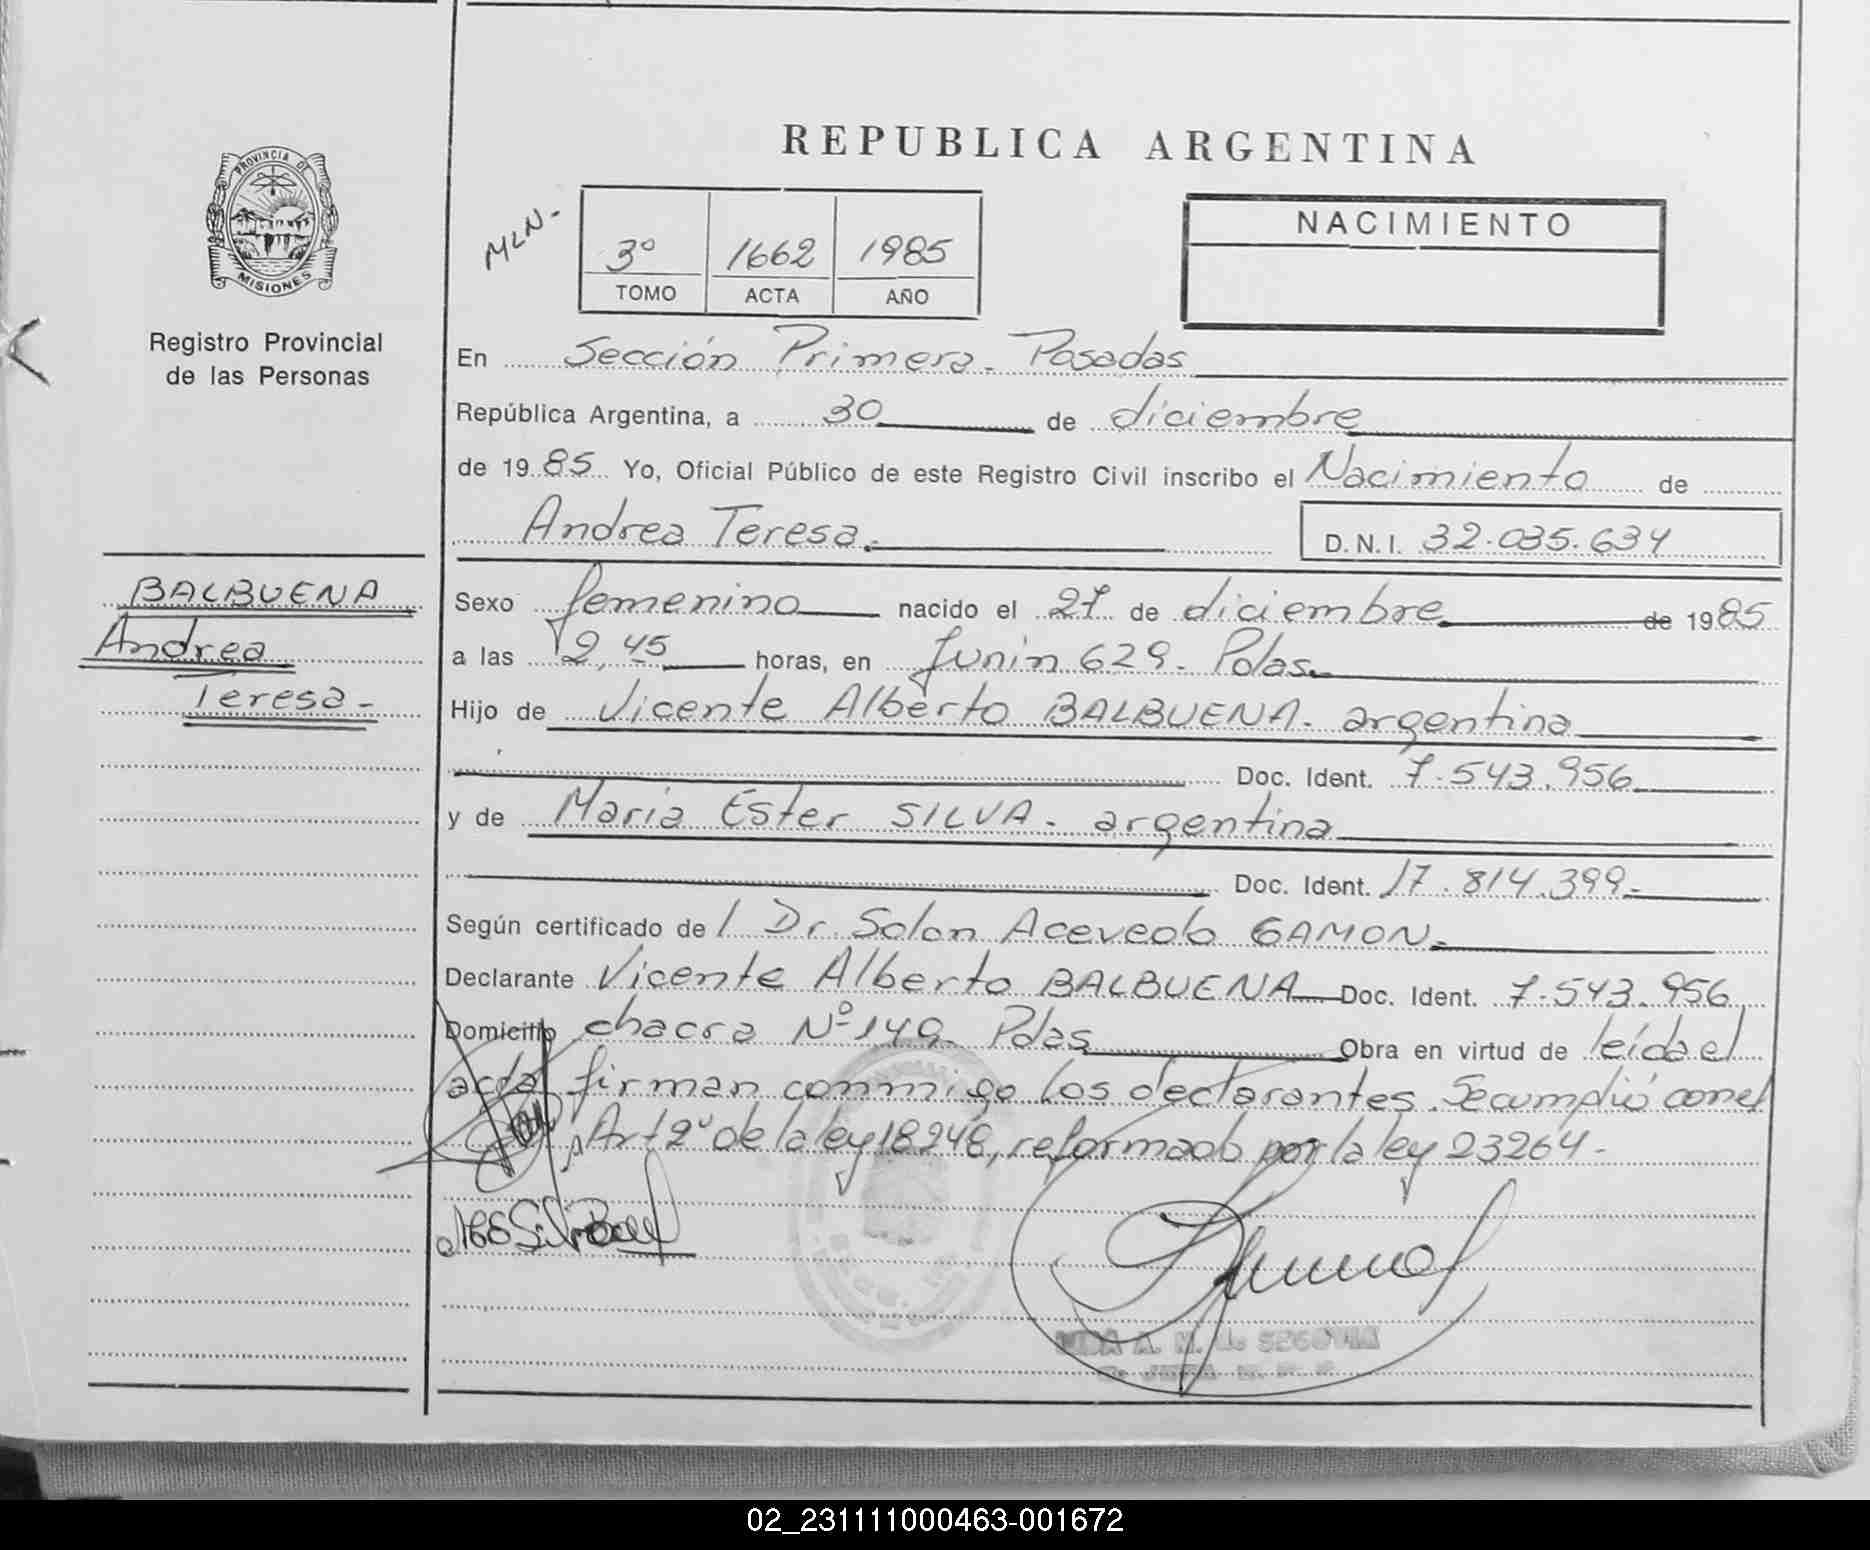 REPUBLICA ARGENTINA
PROVINCIA DE
MISIONES
Registro Provincial
de las Personas
MLN-
3º 1662 1985
TOMO ACTA AÑO
NACIMIENTO
En Sección Primera - Posadas
República Argentina, a 30 de diciembre
de 1985 Yo, Oficial Público de este Registro Civil inscribo el Nacimiento de
Andrea Teresa.- D.N.I. 32.035.634
BALBUENA
Andrea
Teresa-
Sexo femenino nacido el 27 de diciembre de 1985
a las 2,45 horas, en Junin 629- Pdas.
Hijo de Vicente Alberto BALBUENA- argentina
Doc. Ident. 7.543.956
y de Maria Ester SILVA- argentina
Doc. Ident. 17.814.399-
Según certificado de l Dr. Solon Acevedo GAMON-
Declarante Vicente Alberto BALBUENA Doc. Ident. 7.543.956
Domicilio chacra Nº 149- Pdas Obra en virtud de leída el
acta firman conmmigo los declarantes. Se cumplió con el
Art 2º de la ley 18248, reformado por la ley 23264-
SEGOVIA
02_231111000463-001672